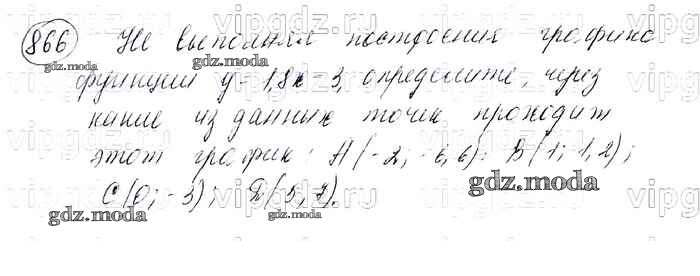 866 Не выполняя построения графика
функции y=1,8x-3, определите, через
какие из данных точек проходит
этот график: A(-2; -6,6); B(1; -1,2);
C(0; -3); D(5; 7).
gdz.moda
gdz.moda
gdz.moda
gdz.moda
gdz.moda
gdz.moda
vipgdz.ru